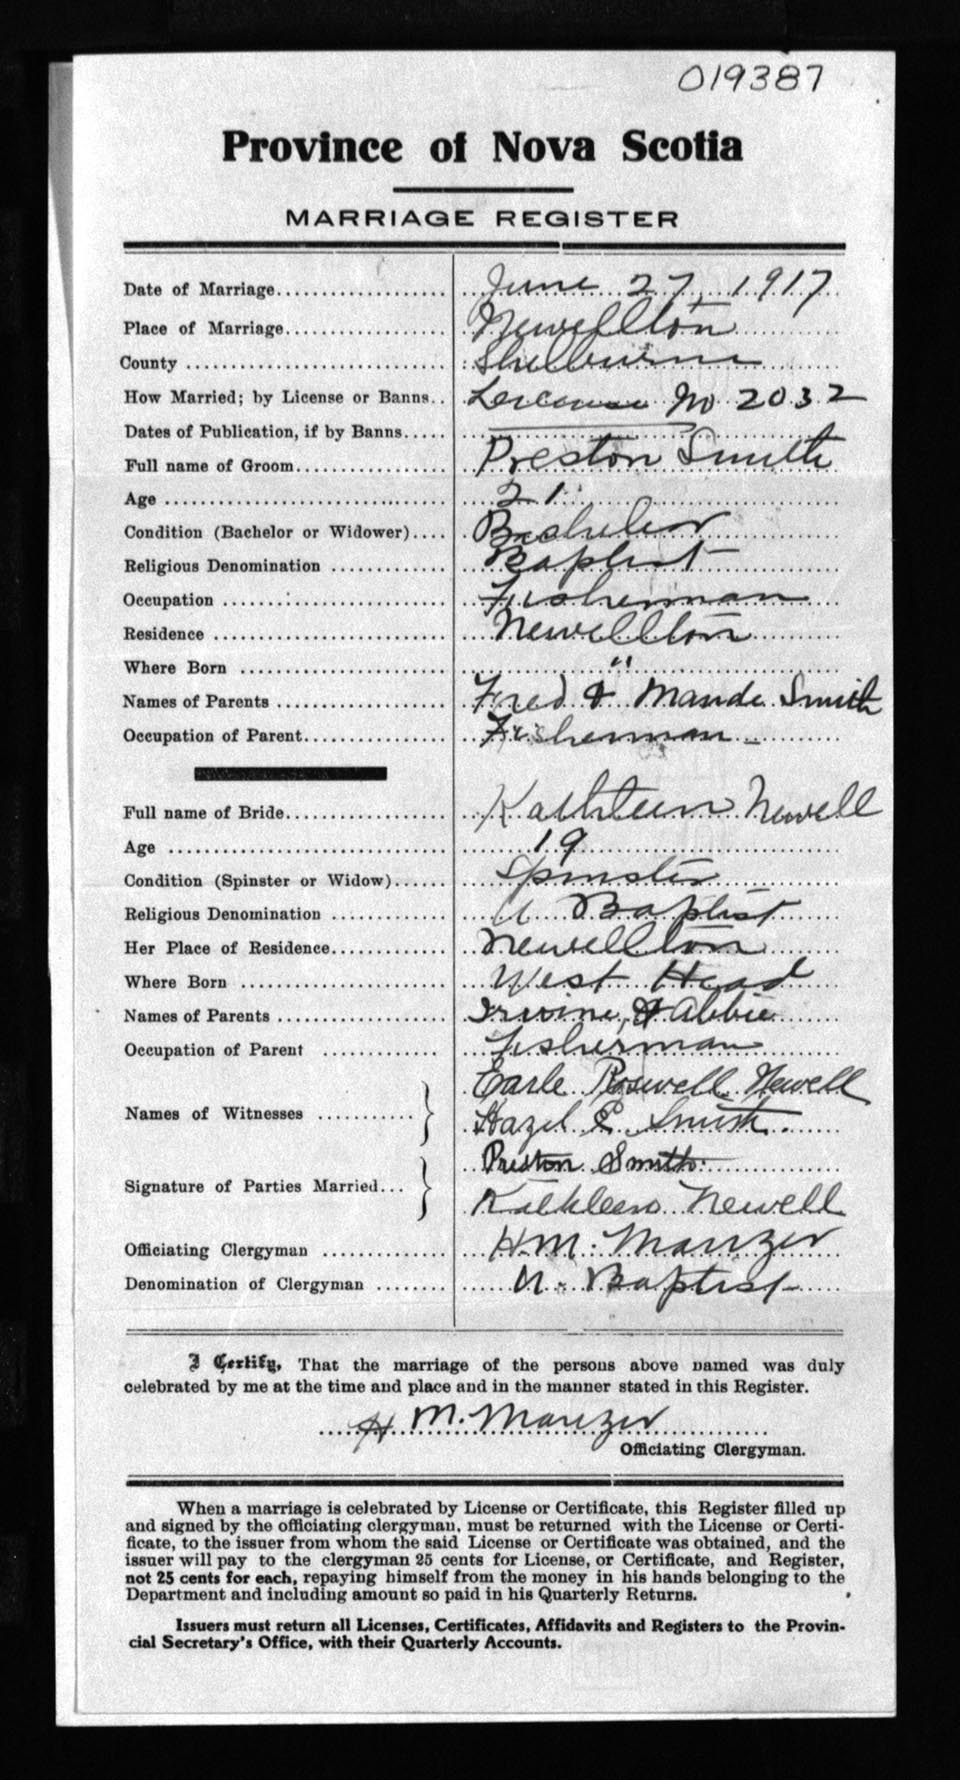 019387
Province of Nova Scotia
MARRIAGE REGISTER
Date of Marriage.................... June 27, 1917
Place of Marriage.................. Newellton
County ............................. Shelburne
How Married; by License or Banns.. License No 2032
Dates of Publication, if by Banns.....
Full name of Groom................. Preston Smith
Age ............................... 21
Condition (Bachelor or Widower).... Bachelor
Religious Denomination ............ Baptist
Occupation ........................ Fisherman
Residence ......................... Newellton
Where Born ........................ "
Names of Parents .................. Fred & Maude Smith
Occupation of Parent............... Fisherman
Full name of Bride................. Kathleen Newell
Age ............................... 19
Condition (Spinster or Widow)...... Spinster
Religious Denomination ............ U Baptist
Her Place of Residence............. Newellton
Where Born ........................ West Head
Names of Parents .................. Irvine, & Abbie
Occupation of Parent ............. Fisherman
Earle Roswell Newell
Names of Witnesses ...........}
Hazel E. Smith.
Preston Smith.
Signature of Parties Married...}
Kathleen Newell
Officiating Clergyman ............. H.M. Manzer
Denomination of Clergyman ........ U. Baptist
I Certify, That the marriage of the persons above named was duly
celebrated by me at the time and place and in the manner stated in this Register.
H M. Manzer
Officiating Clergyman.
When a marriage is celebrated by License or Certificate, this Register filled up
and signed by the officiating clergyman, must be returned with the License or Certi-
ficate, to the issuer from whom the said License or Certificate was obtained, and the
issuer will pay to the clergyman 25 cents for License, or Certificate, and Register,
not 25 cents for each, repaying himself from the money in his hands belonging to the
Department and including amount so paid in his Quarterly Returns.
Issuers must return all Licenses, Certificates, Affidavits and Registers to the Provin-
cial Secretary's Office, with their Quarterly Accounts.